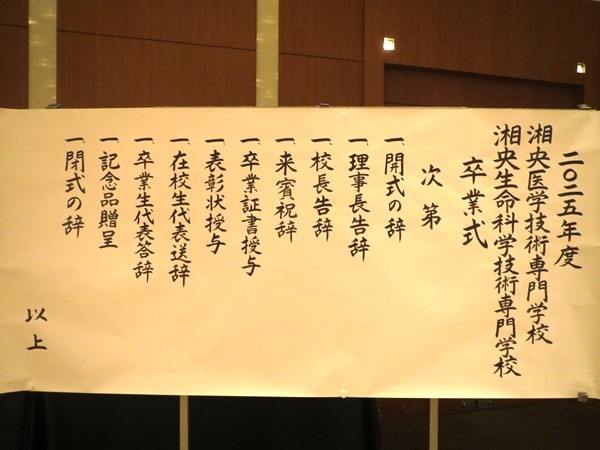 二〇二五年度
湘央医学技術専門学校
湘央生命科学技術専門学校
卒業式
次第
一、開式の辞
一、理事長告辞
一、校長告辞
一、来賓祝辞
一、卒業証書授与
一、表彰状授与
一、在校生代表送辞
一、卒業生代表答辞
一、記念品贈呈
一、閉式の辞
以上